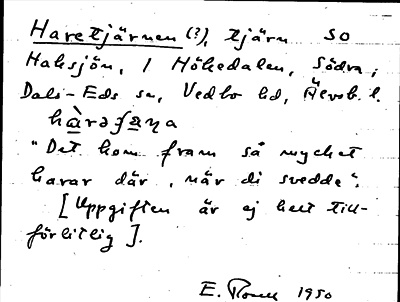 Haretjärnen (?), tjärn SO
Haksjön, / Hökedalen, Södra;
Dals-Eds sn, Vedbo hd, Älvsb. l.
hàrəʃæ̀ṇa
"Det kom fram så mycket
harar där, när di svedde".
[Uppgiften är ej helt till-
förlitlig].
E. 1950